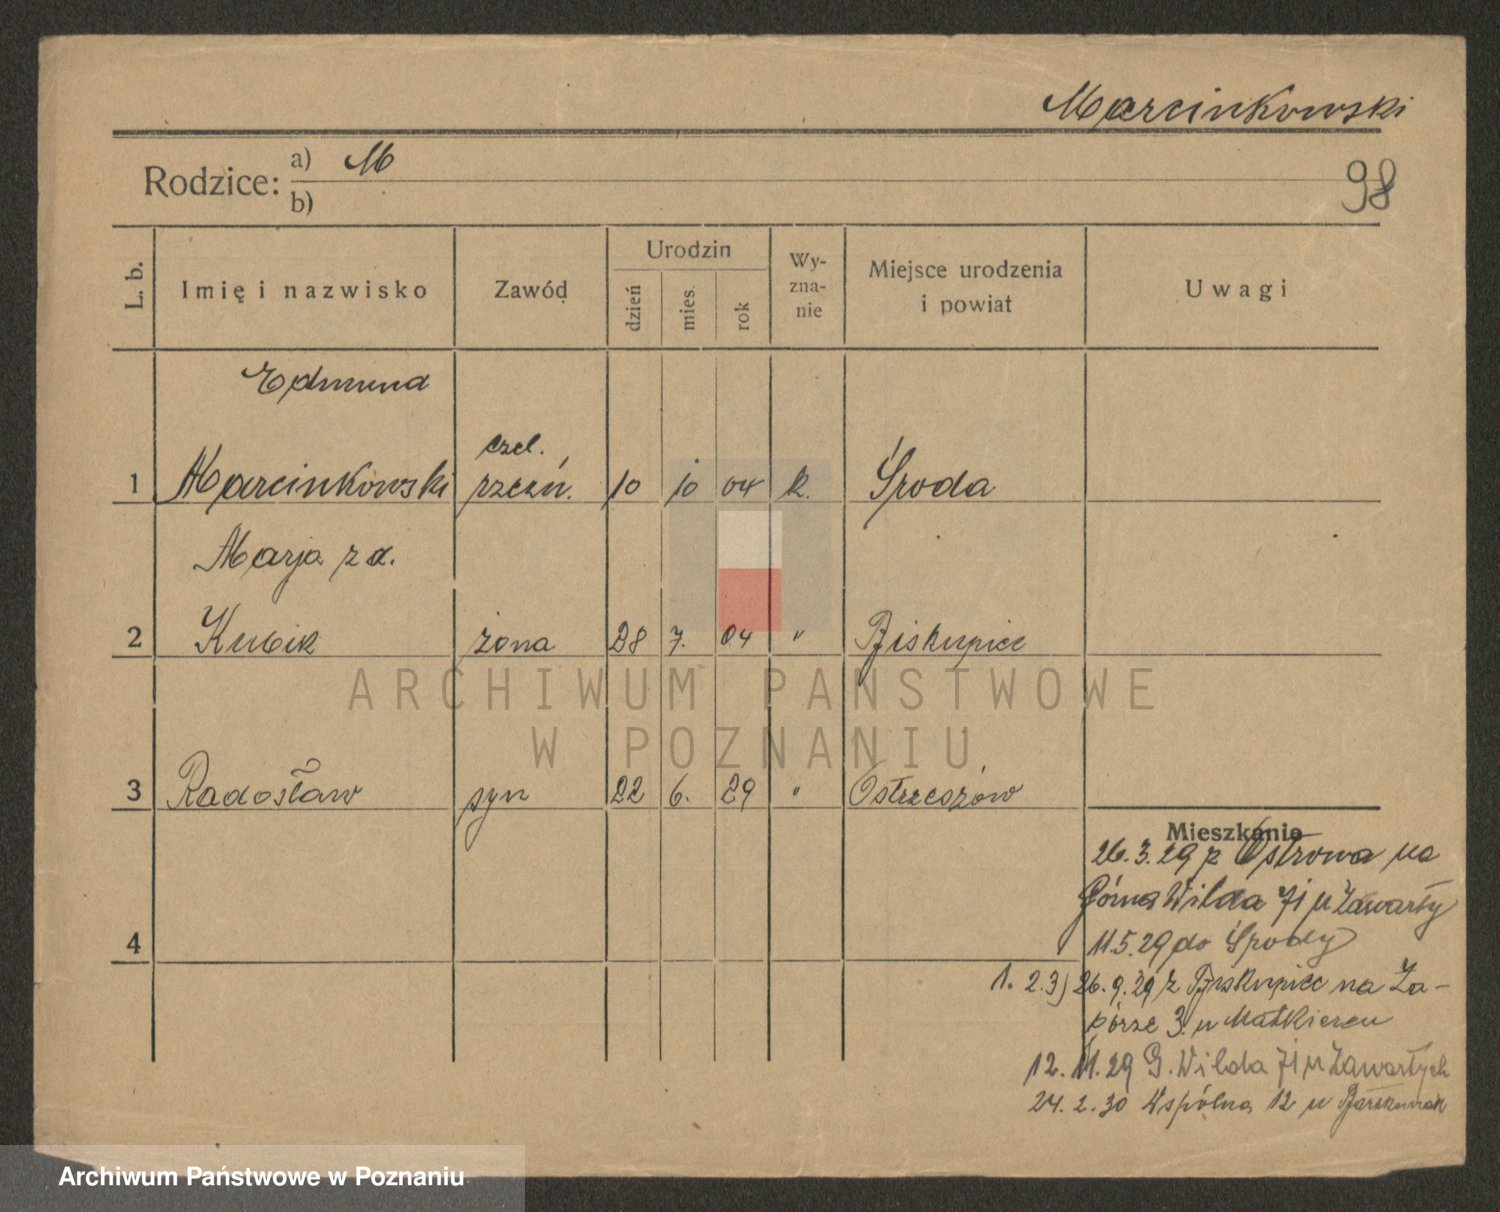 Marcinkowski
Rodzice: a) M
b)
98
L. b. Imię i nazwisko Zawód Urodzin dzień mies. rok Wy-zna-nie Miejsce urodzenia i powiat Uwagi
Edmund
czel.
1 Marcinkowski rzeźn. 10 10 04 k. Środa
Marja z d.
2 Kubik żona 28 7. 04 " Biskupice
3 Radosław syn 22 6. 29 " Ostrzeszów
Mieszkanie
26.3.29 z Ostrowa na
Górna Wilda 71 u Zawarty
4
11.5.29 do Środy
1. 2. 3) 26.9.29 z Biskupic na Za-
górze 3. u
12. 11. 29 G. Wilda 71 u Zawartych
24. 2. 30 Wspólna 12 u
ARCHIWUM PAŃSTWOWE
W POZNANIU
Archiwum Państwowe w Poznaniu